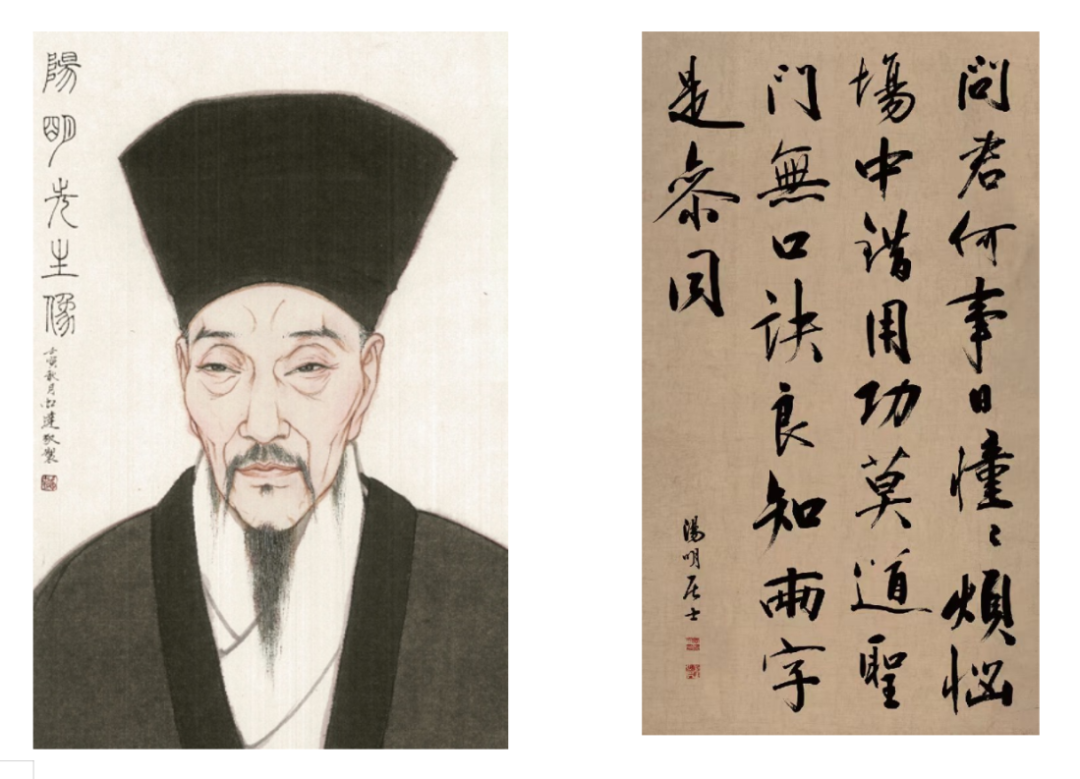 陽明先生像
壬寅秋月
問君何事日憧々煩惱
場中錯用功莫道聖
門無口訣良知兩字
是參同
陽明居士